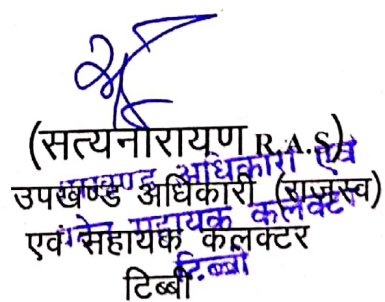 (सत्यनारायण R.A.S)
उपखण्ड अधिकारी (राजस्व)
एवं सहायक कलक्टर
टिब्बी
उपखण्ड अधिकारी एवं
सहायक कलक्टर
टिब्बी